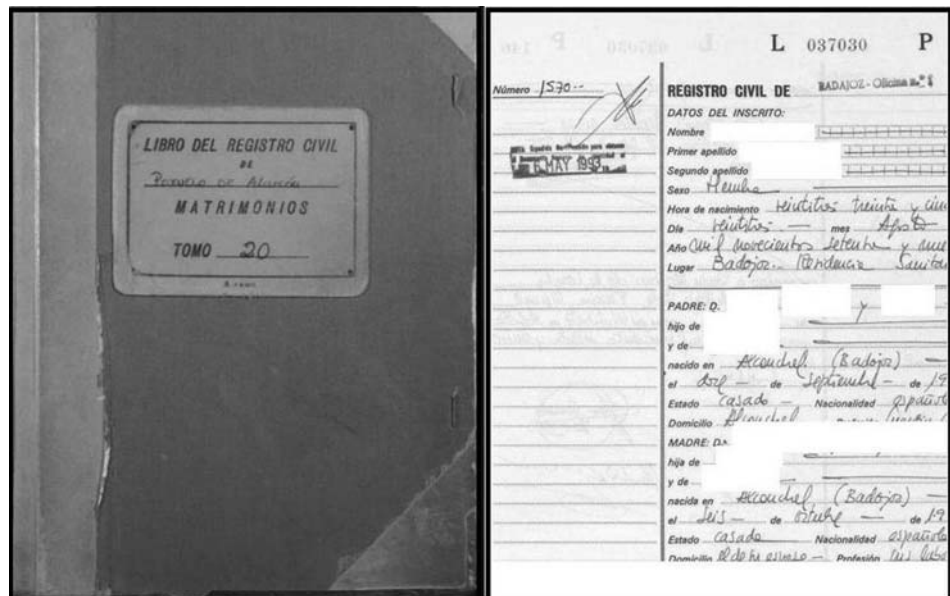 LIBRO DEL REGISTRO CIVIL
DE
Pozuelo de Alarcón
MATRIMONIOS
TOMO 20
L 037030 P
Número 1570
REGISTRO CIVIL DE BADAJOZ - Oficina n.º 1
DATOS DEL INSCRITO:
Nombre
Primer apellido
Segundo apellido
Sexo Hembra
Hora de nacimiento veintitrés treinta y
6 MAY 1993
Día veintitrés mes Agosto
Año mil novecientos setenta y
Lugar Badajoz - Residencia
PADRE: D. y
hijo de
y de
nacido en Alconchel (Badajoz)
el doce de Septiembre de 19
Estado casado Nacionalidad española
Domicilio Alconchel
MADRE: D.ª
hija de
y de
nacida en Alconchel (Badajoz)
el Seis de octubre de 19
Estado casada Nacionalidad española
Domicilio el de su esposo Profesión sus